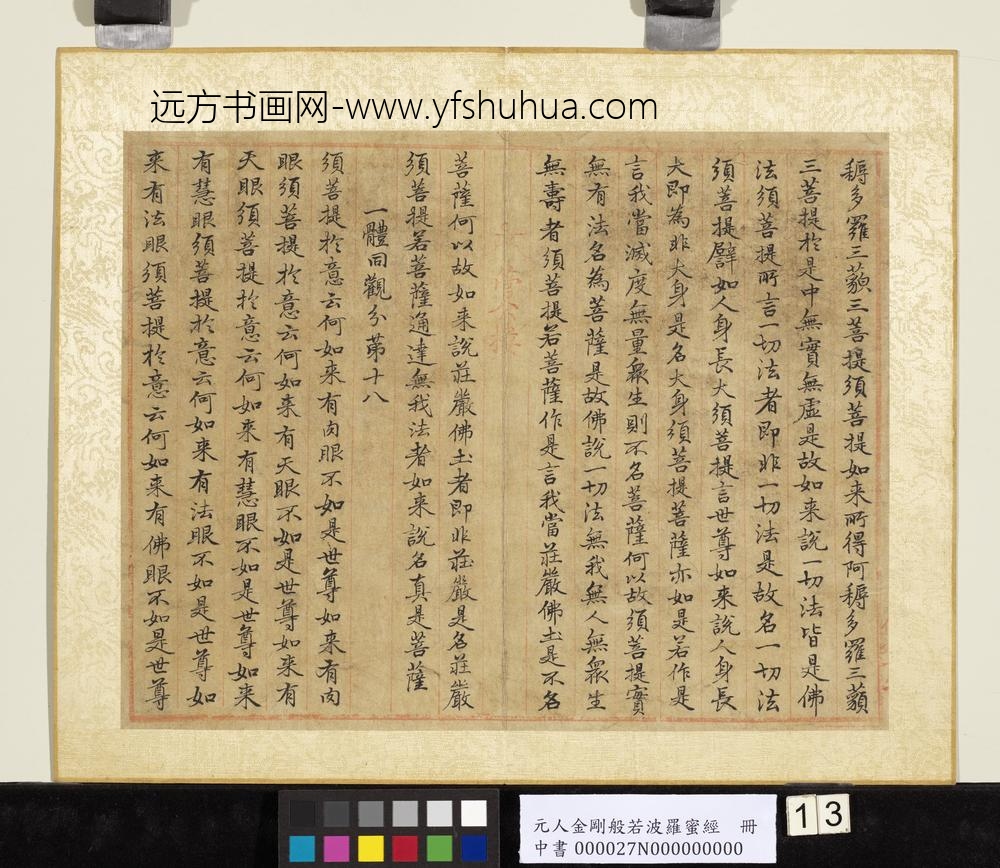 远方书画网-www.yfshuhua.com
耨多羅三藐三菩提須菩提如来所得阿耨多羅三藐
三菩提於是中無實無虛是故如来說一切法皆是佛
法須菩提所言一切法者即非一切法是故名一切法
須菩提譬如人身長大須菩提言世尊如来說人身長
大即為非大身是名大身須菩提菩薩亦如是若作是
言我當滅度無量眾生則不名菩薩何以故須菩提實
無有法名為菩薩是故佛說一切法無我無人無眾生
無壽者須菩提若菩薩作是言我當莊嚴佛土是不名
菩薩何以故如来說莊嚴佛土者即非莊嚴是名莊嚴
須菩提若菩薩通達無我法者如来說名真是菩薩
一體同觀分第十八
須菩提於意云何如来有肉眼不如是世尊如来有肉
眼須菩提於意云何如来有天眼不如是世尊如来有
天眼須菩提於意云何如来有慧眼不如是世尊如来
有慧眼須菩提於意云何如来有法眼不如是世尊如
来有法眼須菩提於意云何如来有佛眼不如是世尊
元人金剛般若波羅蜜經 冊
中書 000027N000000000
13